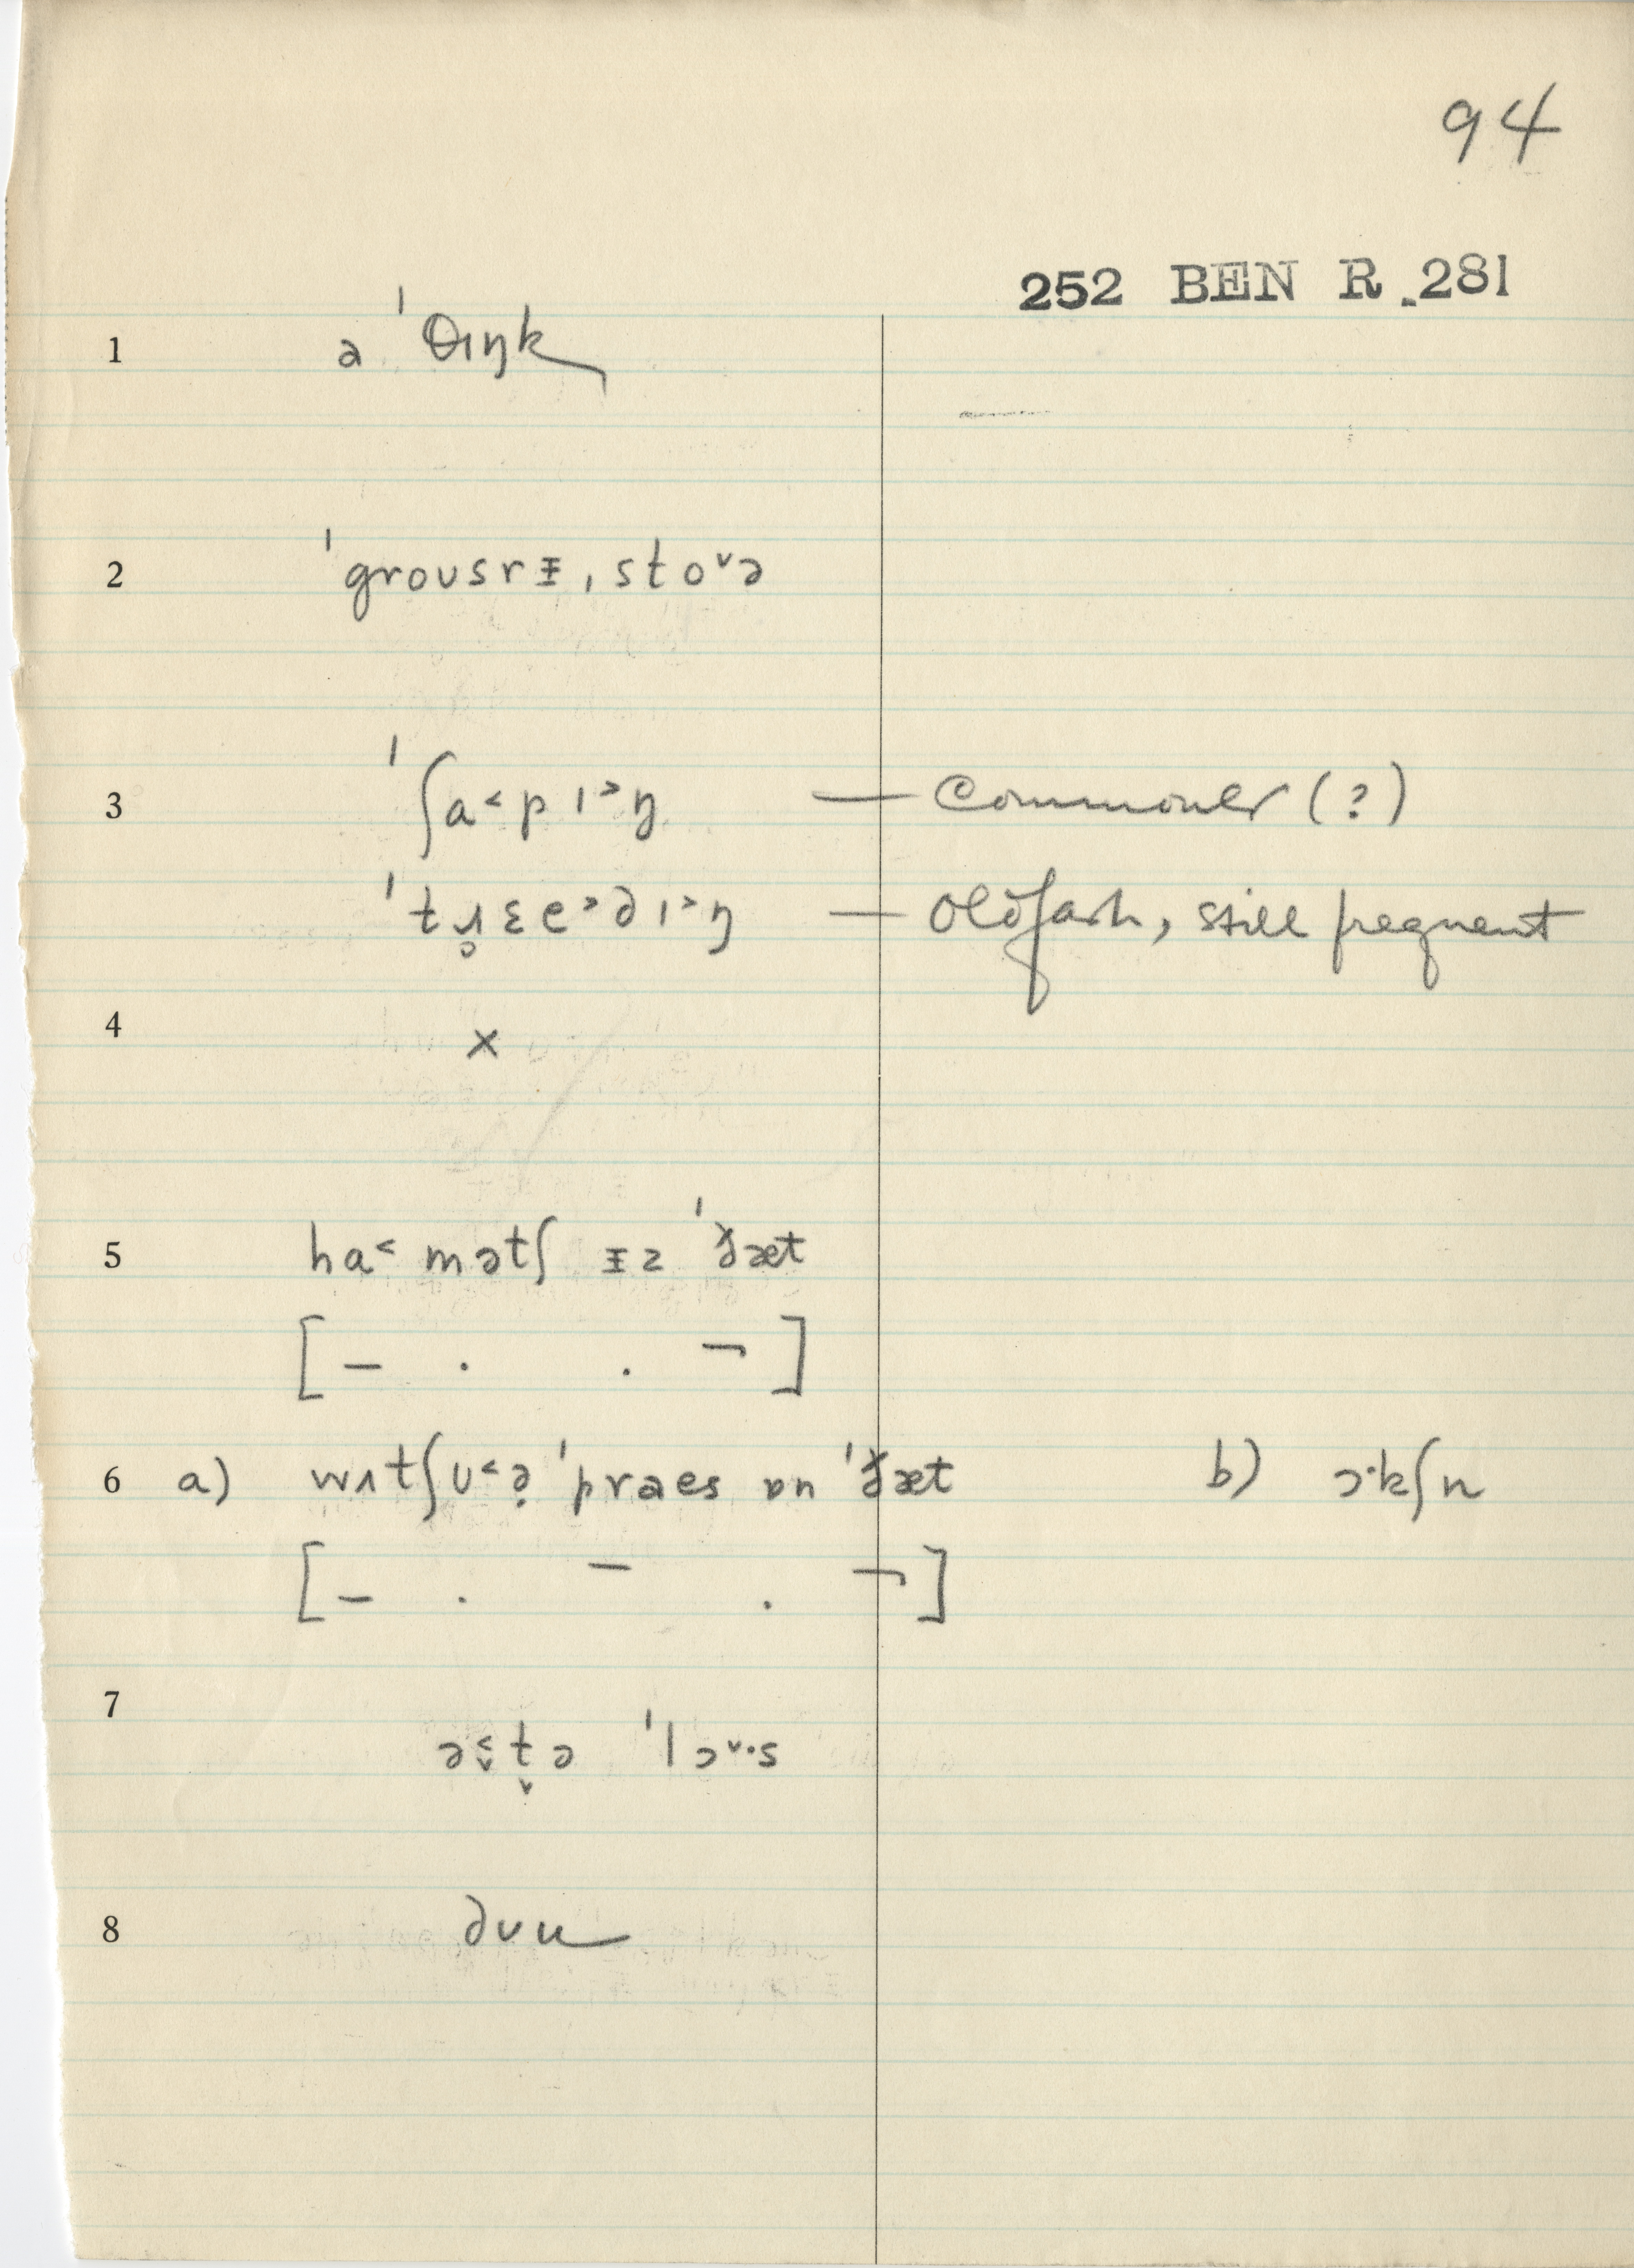 94
252 BEN R.281
1 ə ˈθɪŋk
2 ˈgroʊsrᵻ, stoᵛə
3 ˈʃɑ˂pɪ˃ŋ — Commoner (?)
ˈtɹ̥ɛe˃dɪ˃ŋ — Oldfash, still frequent
4 ×
5 ha˂ mətʃ ᵻz ˈðæt
[– . . ¬]
6 a) wʌtʃʊ˂ə̣ ˈpraes ɒn ˈðæt b) ɔ·kʃn
[– . – . ¬]
7 ə˂t̬ə ˈlɔᵛ·s
8 dʊu